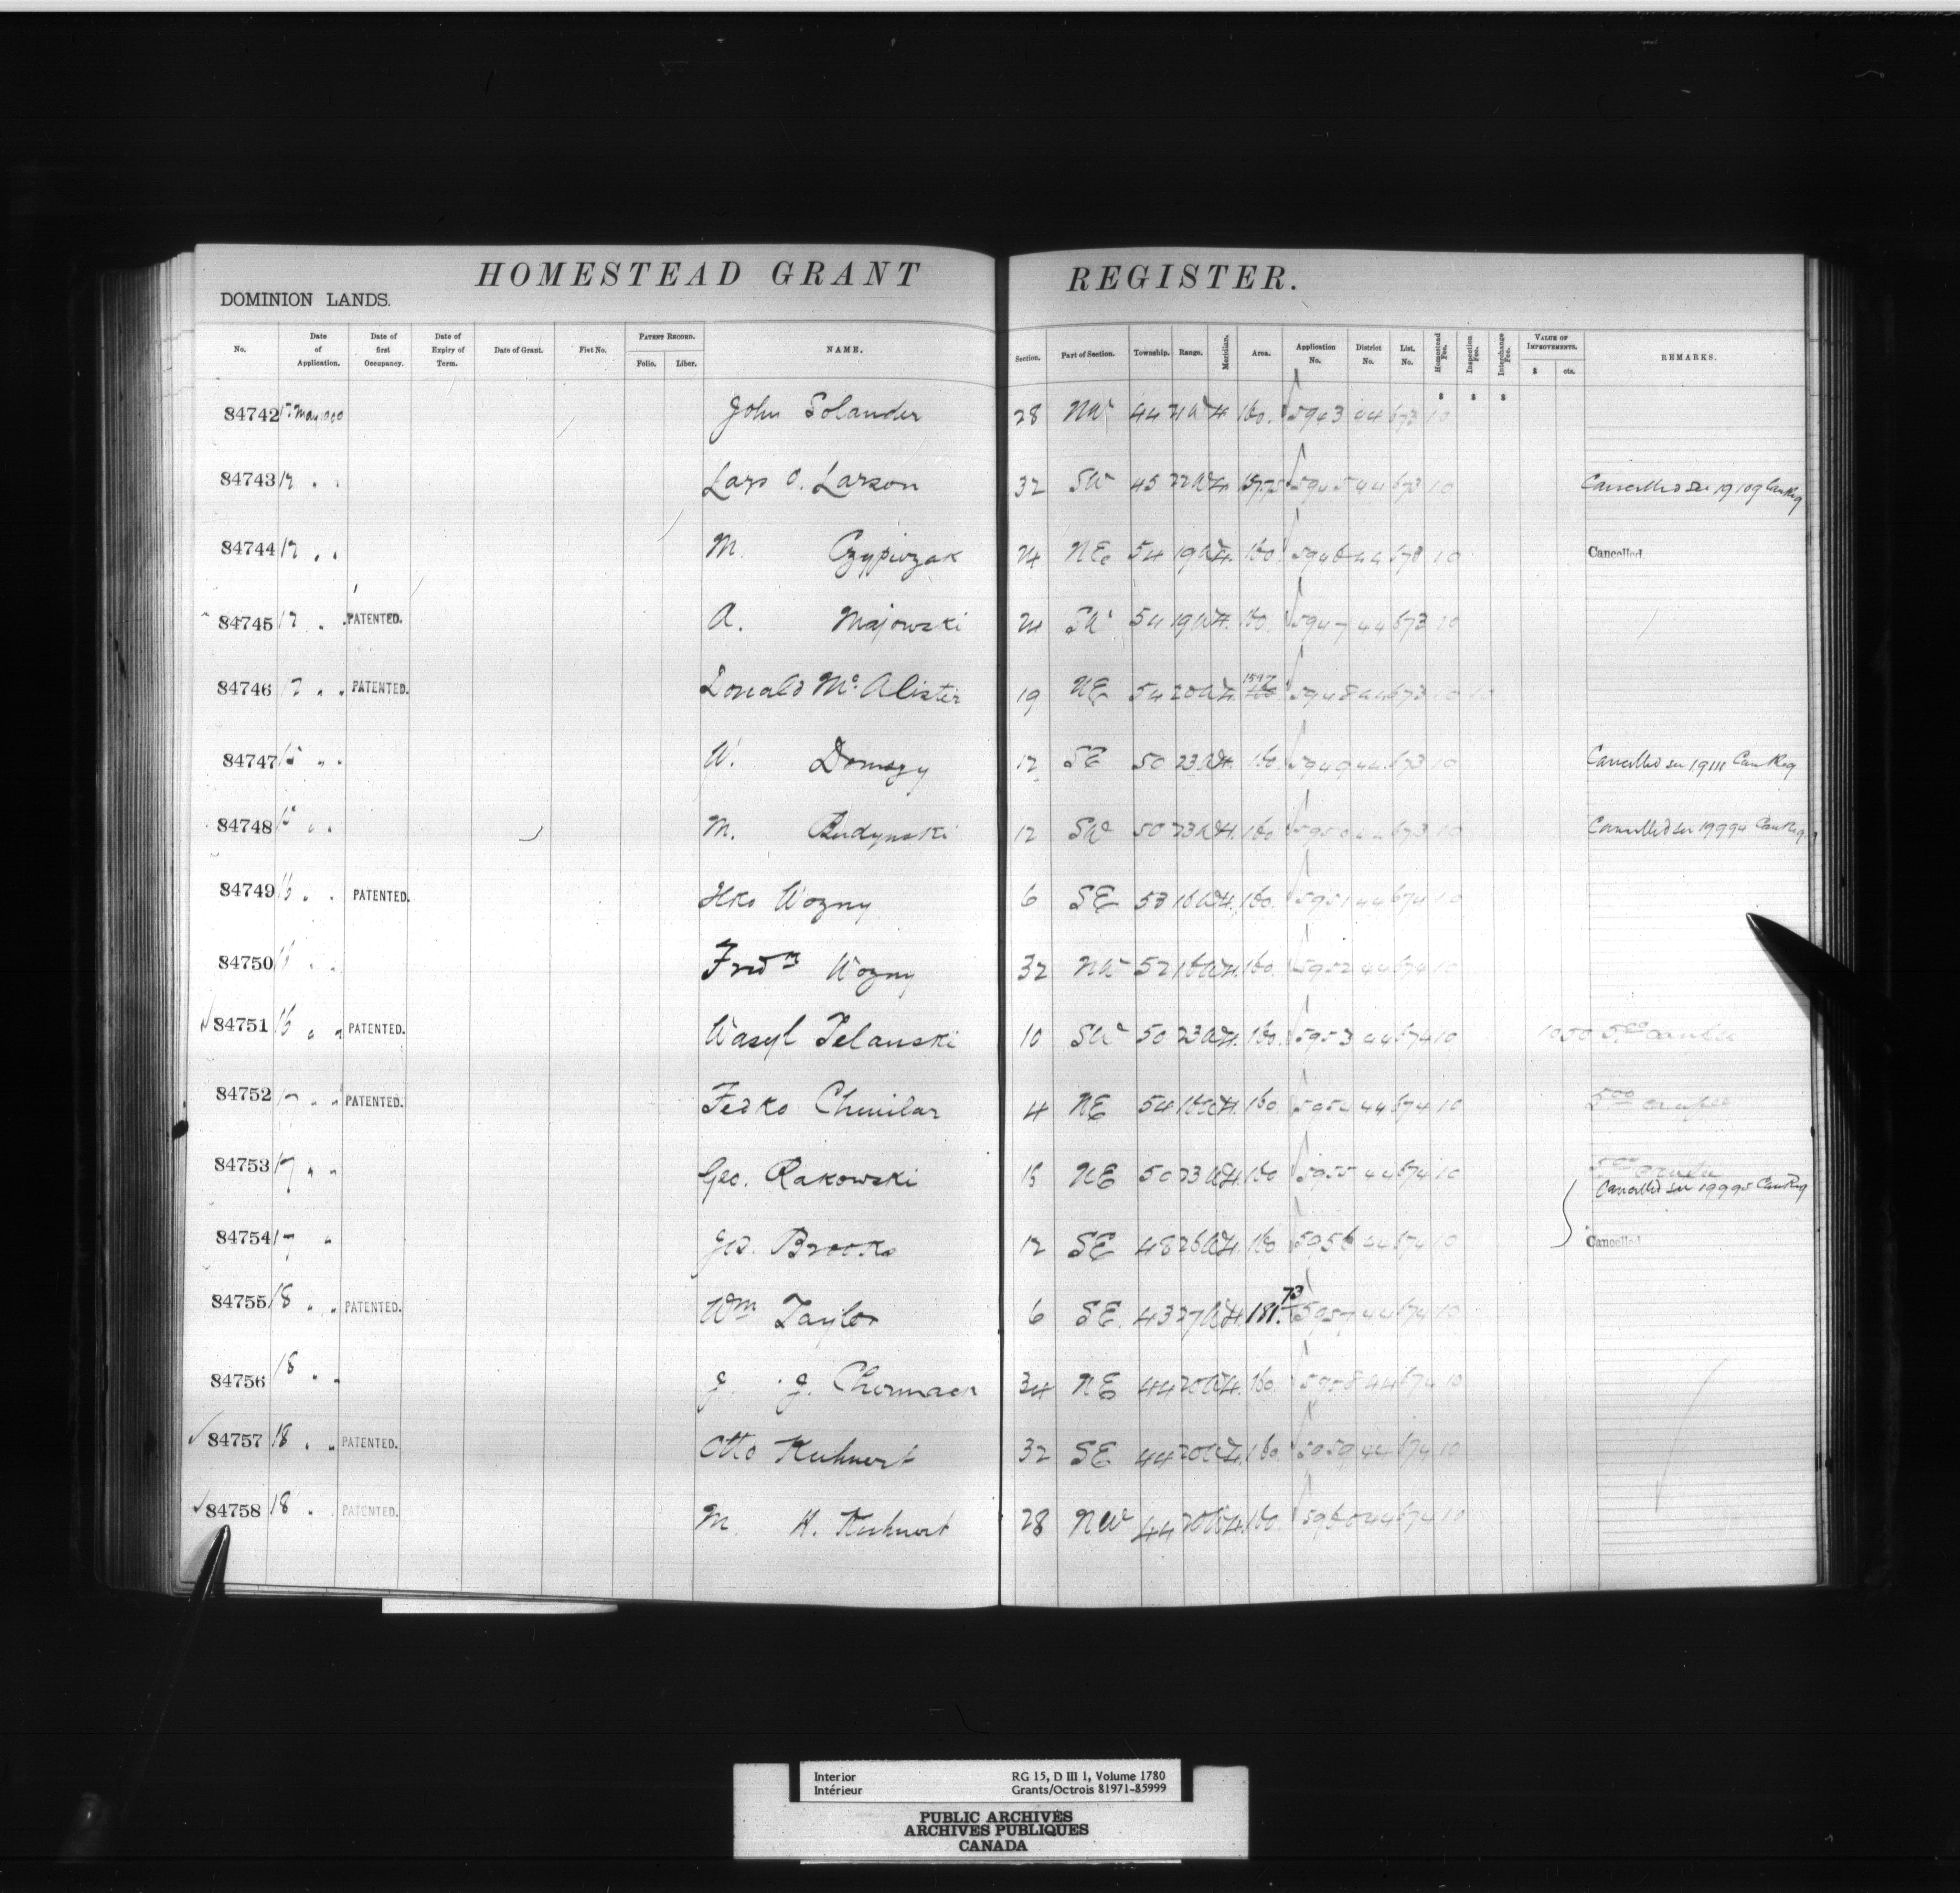 HOMESTEAD GRANT REGISTER.
DOMINION LANDS.
No. Date of Application. Date of first Occupancy. Date of Expiry of Term. Date of Grant. Fiat No. PATENT RECORD. Folio. Liber. NAME. Section. Part of Section. Township. Range. Meridian. Area. Application No. District No. List. No. Homestead Fee. Inspection Fee. Interchange Fee. VALUE OF IMPROVEMENTS. $ cts. REMARKS.
$ $ $
84742 May 1900 John Solander 28 NW 44 21 W 4 160. 5943 44 673 10
84743 17 " " Lars O. Larson 32 SW 45 22 W 4 5945 44 673 10 Cancelled see 19109 Can Reg
84744 17 " " M. 24 NE 54 19 W 4. 160 5946 44 673 10 Cancelled.
84745 17 " " PATENTED. A. Majowski 24 SW 54 19 W 4. 160. 5947 44 673 10
84746 17 " " PATENTED. Donald Mc Alister 19 NE 54 20 W 4. 5948 44 673 10 10
84747 15 " " W. Domszy 12 SE 50 23 W 4. 160. 5949 44 673 10 Cancelled see 19111 Can Reg
84748 15 " " M. Budynski 12 SW 50 23 W 4. 160 5950 44 673 10 Cancelled see 19994 Can Reg.
84749 16 " " PATENTED. Ilko Wozny 6 SE 53 16 W 4. 160. 5951 44 674 10
84750 16 " " Fred m Wozny 32 NW 52 16 W 4. 160. 5952 44 674 10
84751 16 " " PATENTED. Wasyl Zelanski 10 SW 50 23 W 4. 160. 5953 44 674 10 1050 5.00
84752 17 " " PATENTED. Fedko Chmilar 4 NE 54 16 W 4. 160. 5954 44 674 10 5.00
84753 17 " " Geo. Rakowski NE 50 23 W 4. 160 5955 44 674 10 5.00
Cancelled see 19995 Can Reg
84754 17 " Geo. Brooks 12 SE 48 26 W 4. 160. 5956 44 674 10 Cancelled
84755 18 " " PATENTED. Wm Taylor 6 SE. 43 27 W 4. 181.73 5957 44 674 10
84756 18 " " J. J. Chermack 34 NE 44 20 W 4. 160. 5958 44 674 10
84757 18 " " PATENTED. Otto Kuhnert 32 SE 44 20 W 4. 160. 5959 44 674 10
84758 18 " " PATENTED. M. H. Kuhnert 28 NW 44 20 W 4. 160. 5960 44 674 10
Interior RG 15, D III 1, Volume 1780
Intérieur Grants/Octrois 81971-85999
PUBLIC ARCHIVES
ARCHIVES PUBLIQUES
CANADA